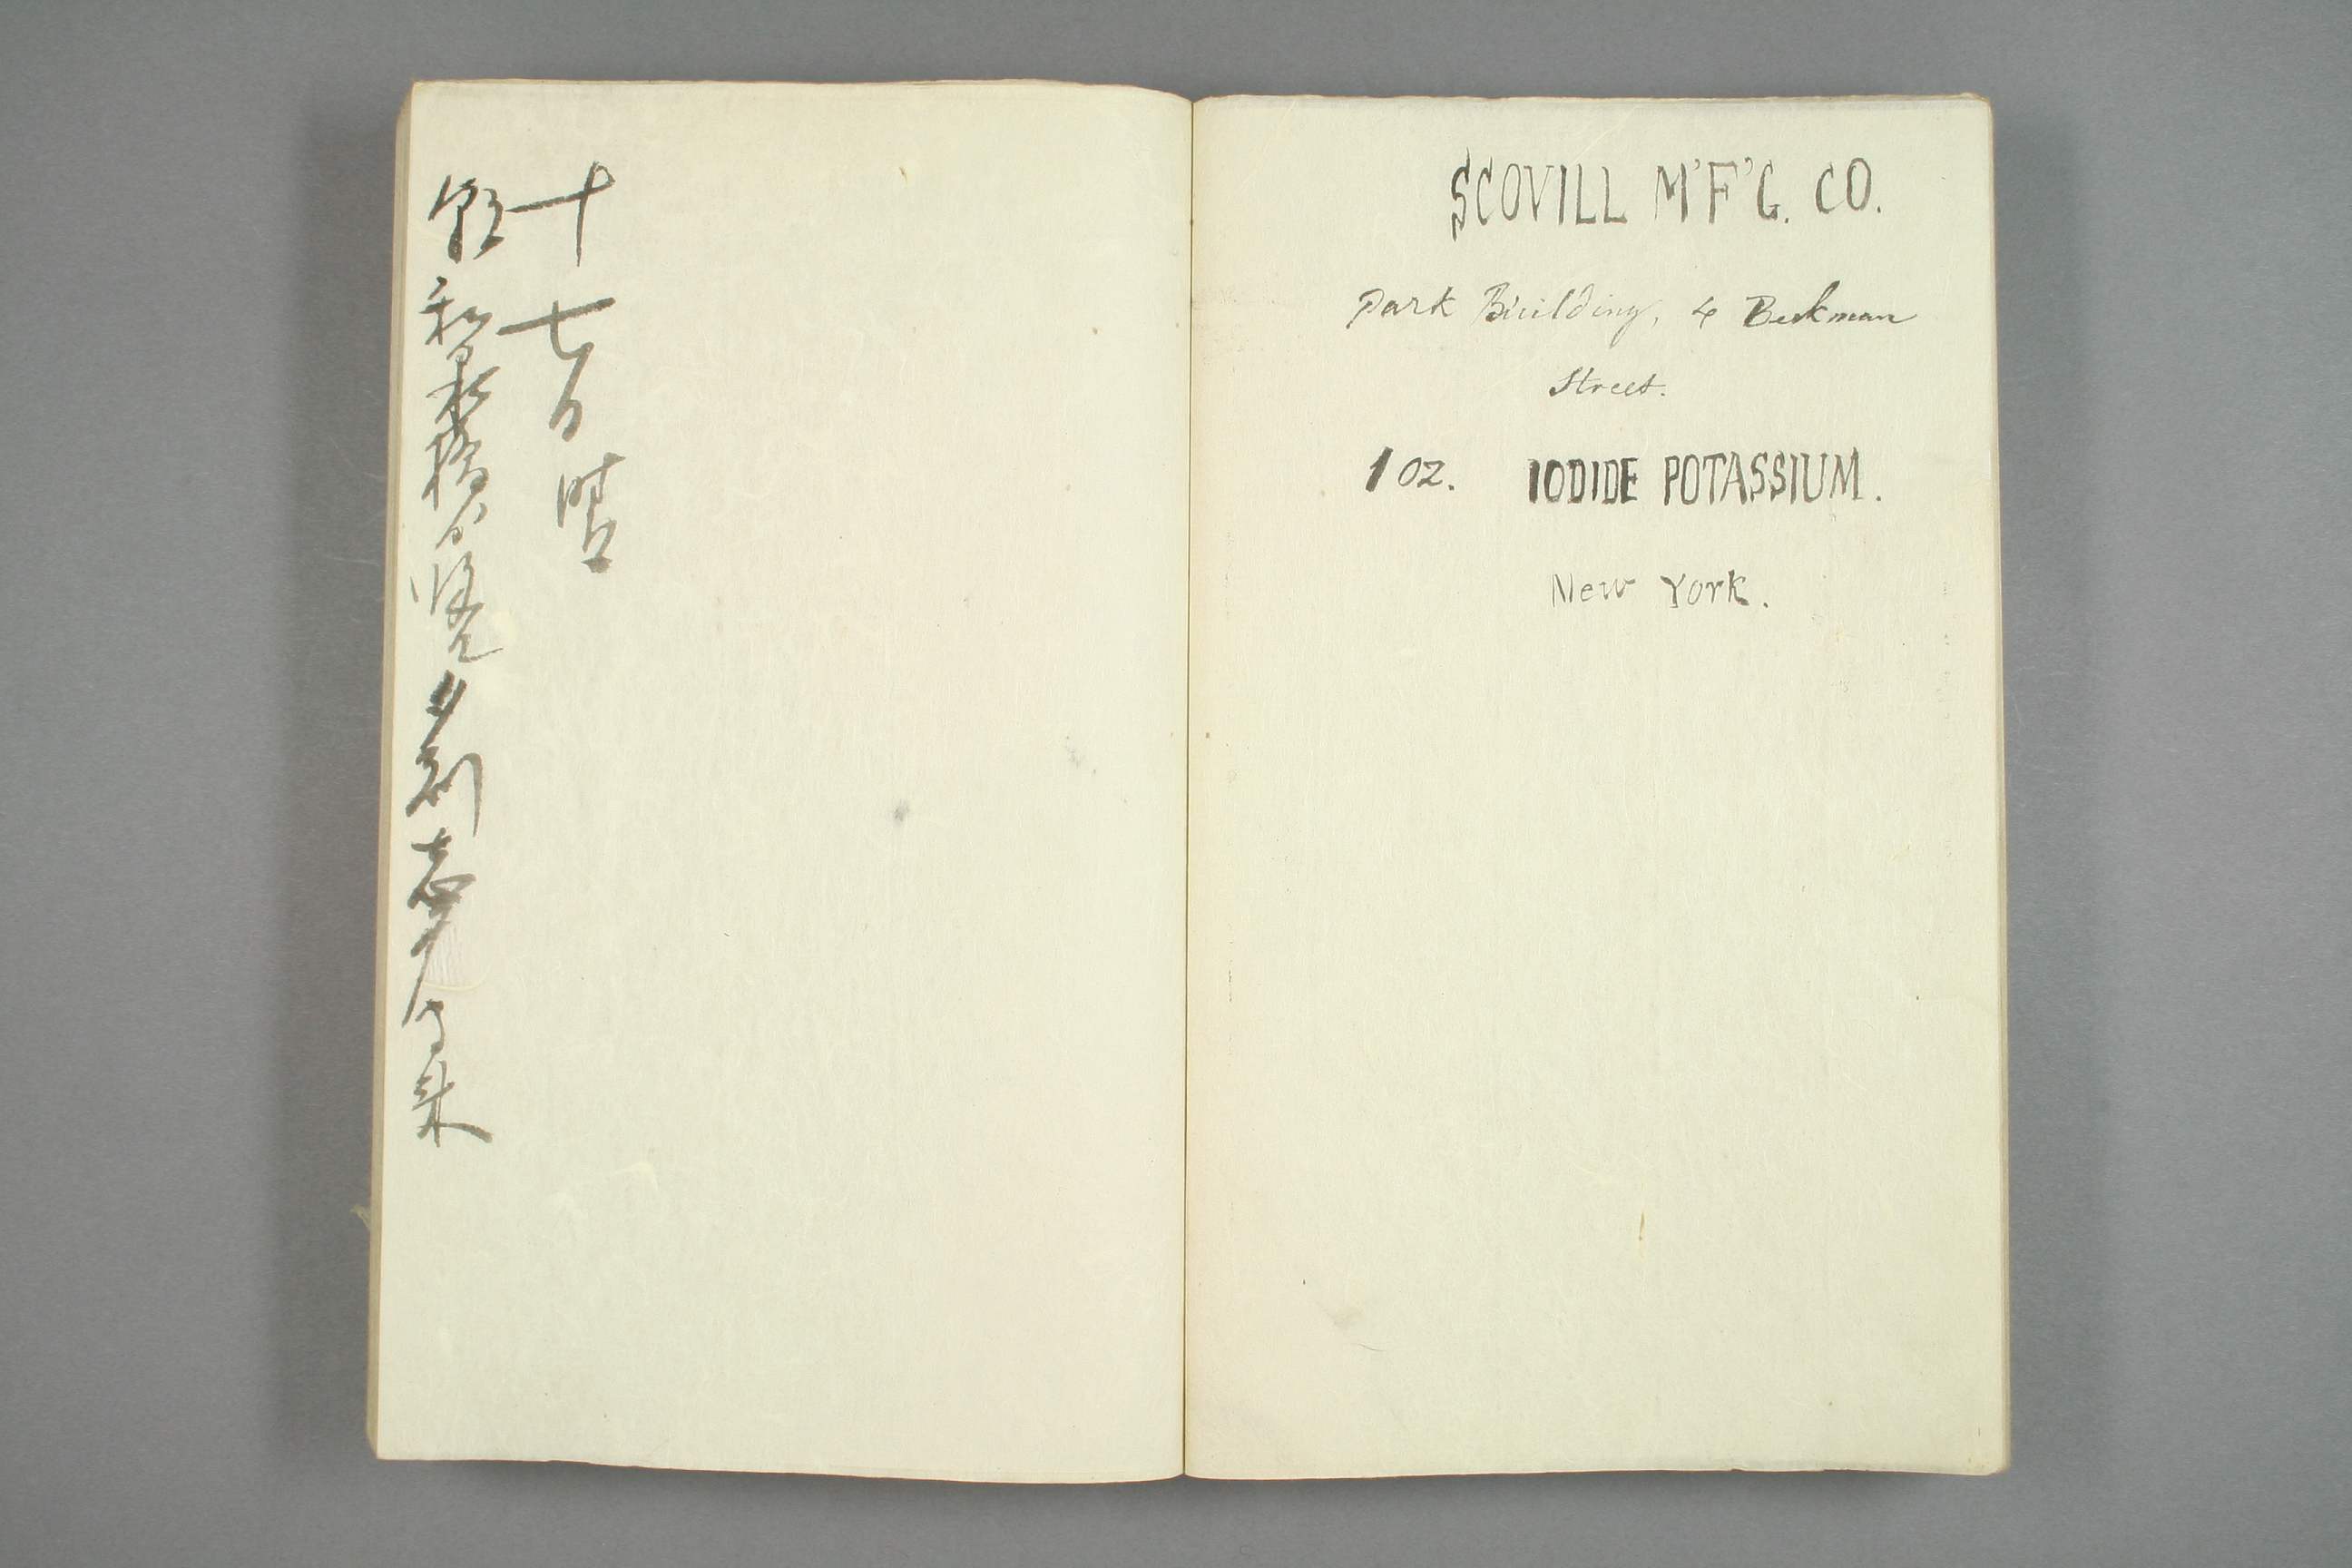 SCOVILL M'F'G. CO.
Park Building, 4 Beekman
Street.
1 oz. IODIDE POTASSIUM.
New York.
十七日晴
朝和泉橋夕刻来